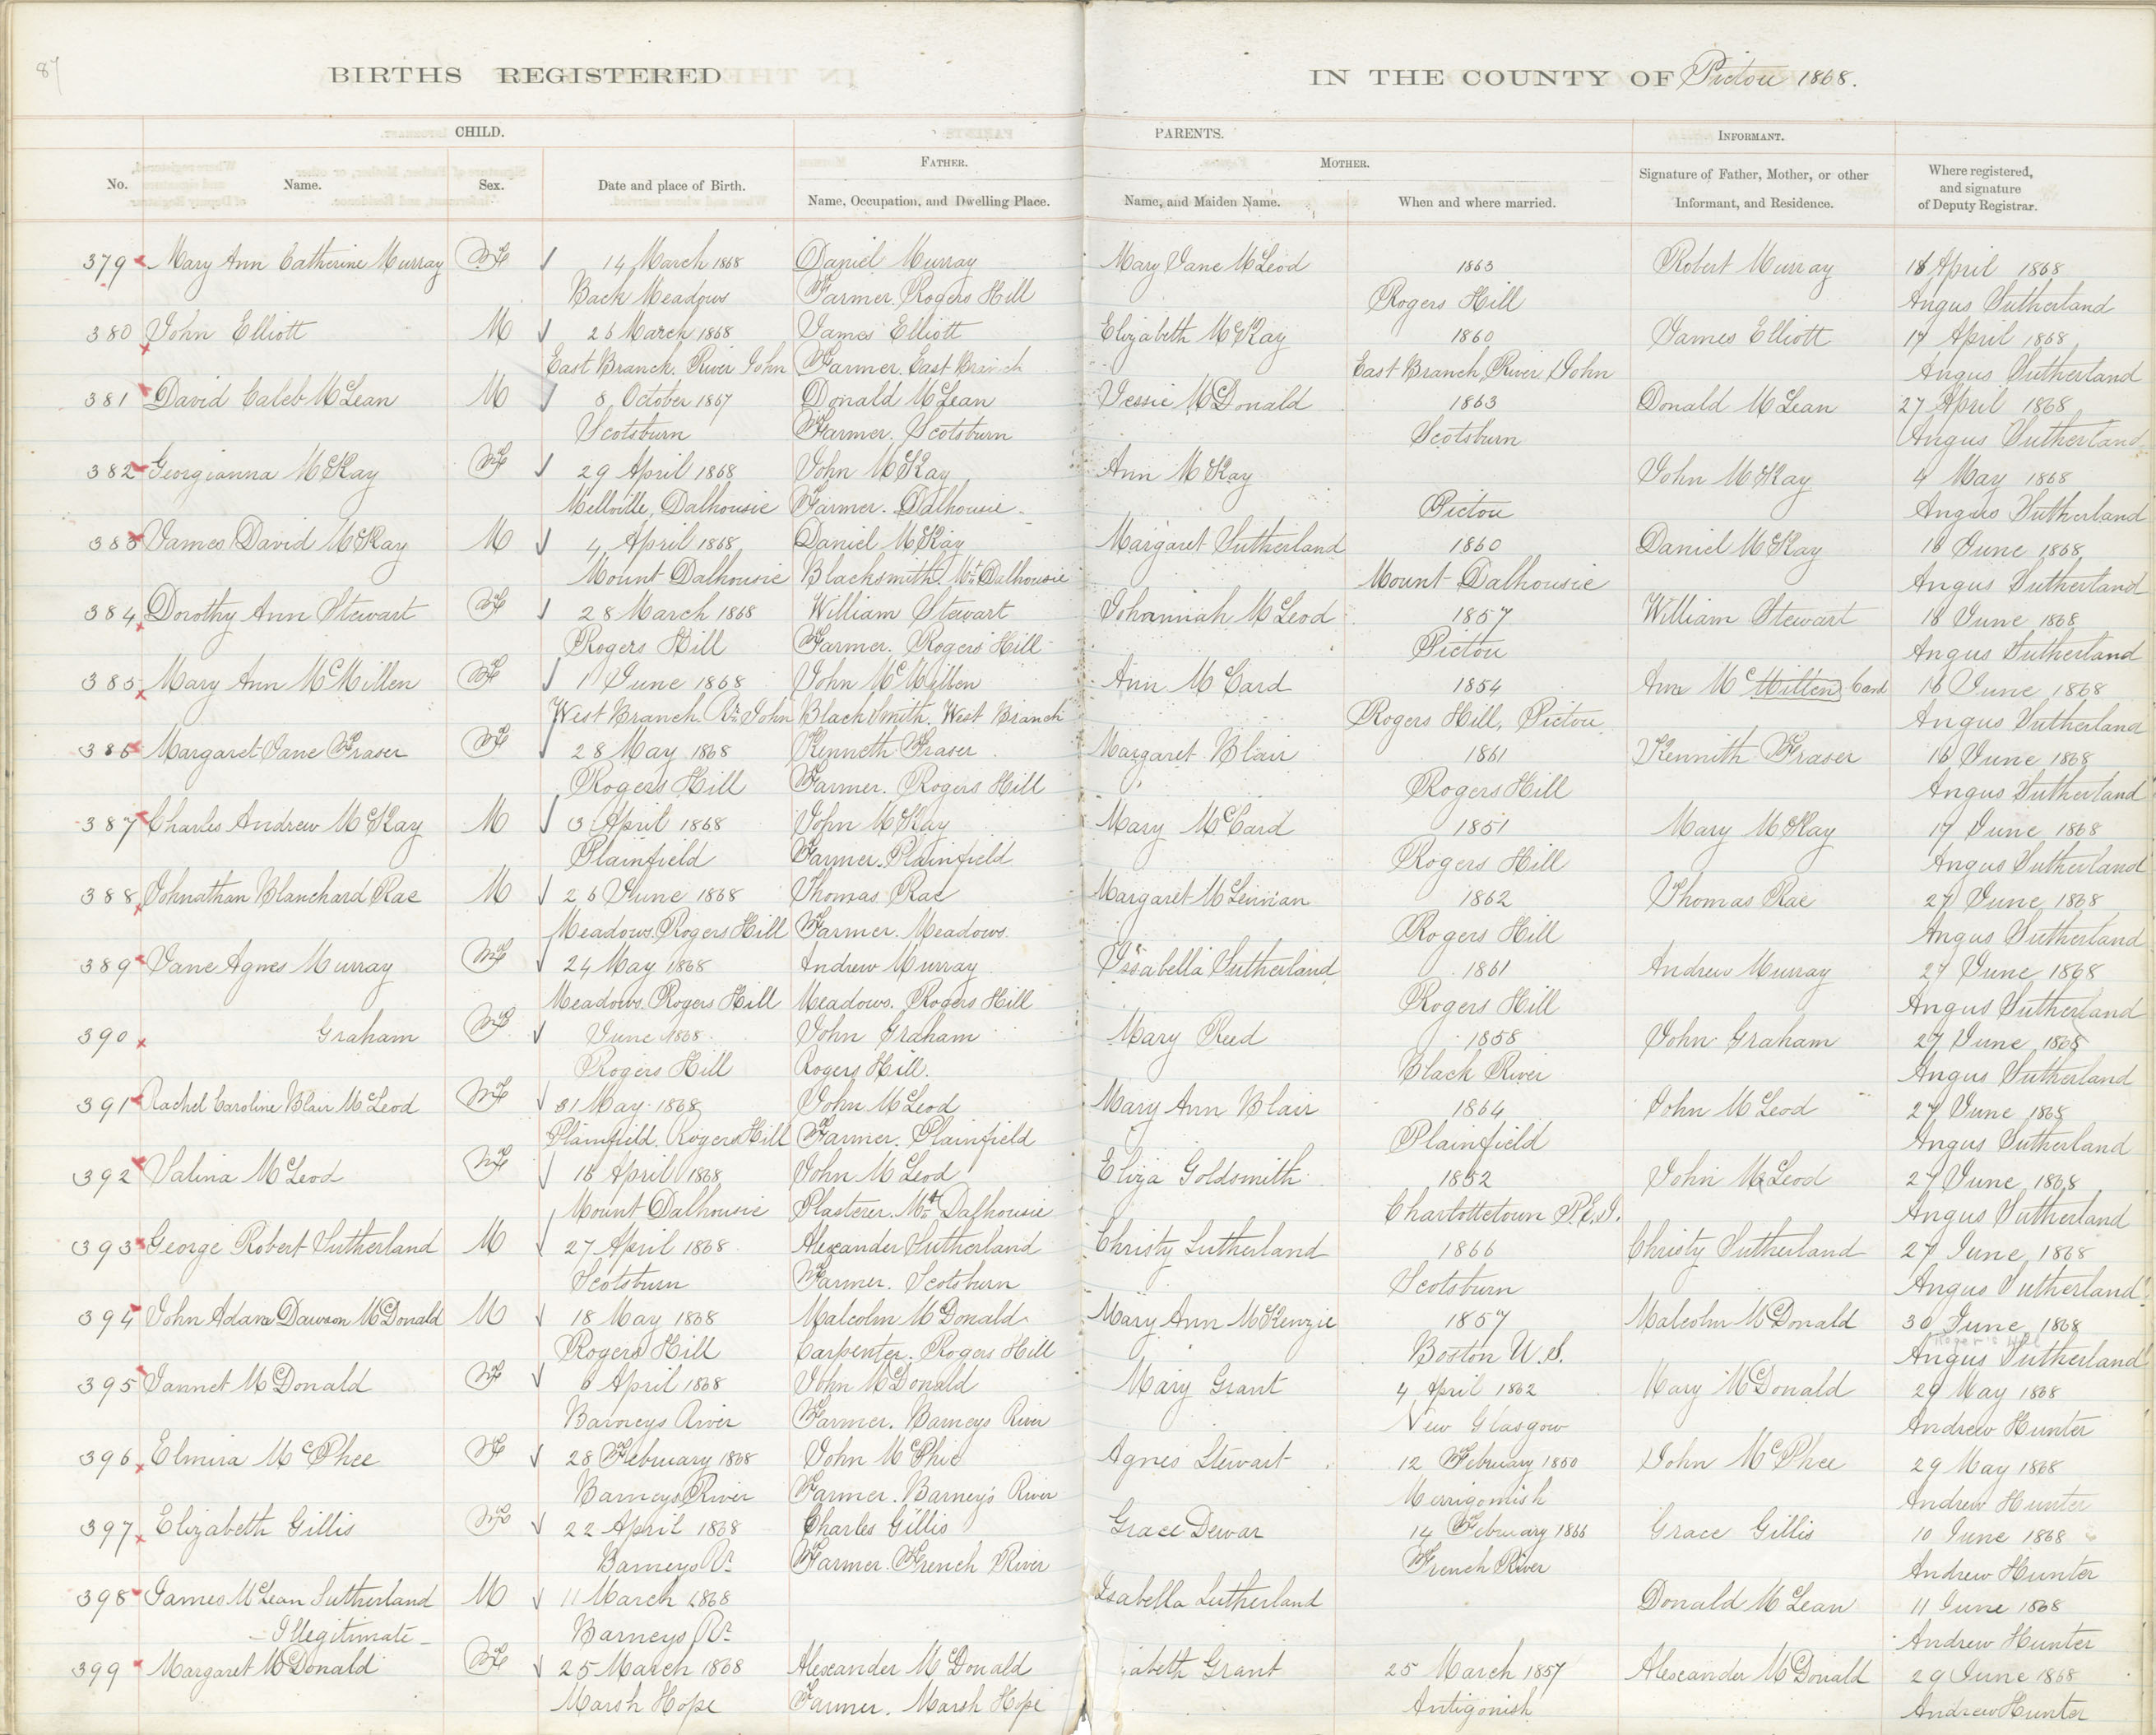 87
BIRTHS REGISTERED IN THE COUNTY OF Pictou 1868.
CHILD. PARENTS. INFORMANT.
FATHER. MOTHER.
No. Name. Sex. Date and place of Birth. Name, Occupation, and Dwelling Place. Name, and Maiden Name. When and where married. Signature of Father, Mother, or other Informant, and Residence. Where registered, and signature of Deputy Registrar.
379 Mary Ann Catherine Murray F 14 March 1868 Daniel Murray Mary Jane McLeod 1863 Robert Murray 18 April 1868
Back Meadows Farmer. Rogers Hill Rogers Hill Angus Sutherland
380 John Elliott M 26 March 1868 James Elliott Elizabeth McKay 1860 James Elliott 17 April 1868
East Branch. River John Farmer. East Branch East Branch, River John Angus Sutherland
381 David Caleb McLean M 8 October 1867 Donald McLean Jessie McDonald 1863 Donald McLean 27 April 1868
Scotsburn Farmer. Scotsburn Scotsburn Angus Sutherland
382 Georgianna McKay F 29 April 1868 John McKay Ann McKay John McKay 4 May 1868
Mellville, Dalhousie Farmer. Dalhousie. Pictou Angus Sutherland
383 James David McKay M 4 April 1868 Daniel McKay Margaret Sutherland 1860 Daniel McKay 16 June 1868
Mount Dalhousie Blacksmith. Mt. Dalhousie Mount Dalhousie Angus Sutherland
384 Dorothy Ann Stewart F 28 March 1868 William Stewart Johanniah McLeod 1857 William Stewart 16 June 1868
Rogers Hill Farmer. Rogers Hill Pictou Angus Sutherland
385 Mary Ann McMillen F 1 June 1868 John McMillen Ann McCard 1854 Ann Mc Millen Card 16 June 1868
West Branch. Rr. John Blacksmith. West Branch Rogers Hill, Pictou Angus Sutherland
386 Margaret Jane Fraser F 28 May 1868 Kenneth Fraser Margaret Blair 1861 Kennith Fraser 16 June 1868
Rogers Hill Farmer. Rogers Hill Rogers Hill Angus Sutherland
387 Charles Andrew McKay M 3 April 1868 John McKay Mary McCard 1851 Mary McKay 17 June 1868
Plainfield Farmer. Plainfield Rogers Hill Angus Sutherland
388 Johnathan Blanchard Rae M 26 June 1868 Thomas Rae Margaret McLennan 1862 Thomas Rae 27 June 1868
Meadows. Rogers Hill Farmer. Meadows. Rogers Hill Angus Sutherland
389 Jane Agnes Murray F 24 May 1868 Andrew Murray Issabella Sutherland 1861 Andrew Murray 27 June 1868
Meadows. Rogers Hill Meadows. Rogers Hill Rogers Hill Angus Sutherland
390 Graham F June 1868 John Graham Mary Reed 1858 John Graham 27 June 1868
Rogers Hill Rogers Hill. Black River Angus Sutherland
391 Rachel Caroline Blair McLeod F 31 May 1868 John McLeod Mary Ann Blair 1864 John McLeod 27 June 1868
Plainfield. Rogers Hill Farmer. Plainfield Plainfield Angus Sutherland
392 Salina McLeod F 16 April 1868 John McLeod Eliza Goldsmith 1852 John McLeod 27 June 1868
Mount Dalhousie Plasterer. Mt. Dalhousie Charlottetown P.E.I. Angus Sutherland
393 George Robert Sutherland M 27 April 1868 Alexander Sutherland Christy Sutherland 1866 Christy Sutherland 27 June 1868
Scotsburn Farmer. Scotsburn Scotsburn Angus Sutherland
394 John Adam Dawson McDonald M 18 May 1868 Malcolm McDonald Mary Ann McKenzie 1857 Malcolm McDonald 30 June 1868
Rogers Hill Carpenter. Rogers Hill Boston U.S. Angus Sutherland
395 Jannet McDonald F 6 April 1868 John McDonald Mary Grant 4 April 1862 Mary McDonald 29 May 1868
Barneys River Farmer. Barneys River New Glasgow Andrew Hunter
396 Elmira McPhee F 28 February 1868 John McPhie Agnes Stewart 12 February 1850 John McPhee 29 May 1868
Barneys River Farmer. Barney's River Merrigomish Andrew Hunter
397 Elizabeth Gillis F 22 April 1868 Charles Gillis Grace Dewar 14 February 1866 Grace Gillis 10 June 1868
Barneys Rr. Farmer. French River French River Andrew Hunter
398 James McLean Sutherland M 11 March 1868 Isabella Sutherland Donald McLean 11 June 1868
- Illegitimate - Barneys Rr. Andrew Hunter
399 Margaret McDonald F 25 March 1868 Alexander McDonald abeth Grant 25 March 1857 Alexander McDonald 29 June 1868
Marsh Hope Farmer. Marsh Hope Antigonish Andrew Hunter